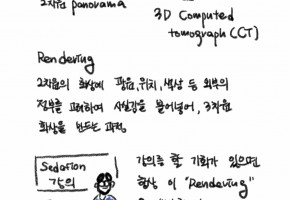 2차원 panorama
3D Computed
tomograph (CT)
Rendering
2차원의 화상에 광원, 위치, 색상 등 외부의
정보를 고려하여 사실감을 불어넣어, 3차원
화상을 만드는 과정.
Sedation
강의
강의를 할 기회가 있으면
항상 이 "Rendering"